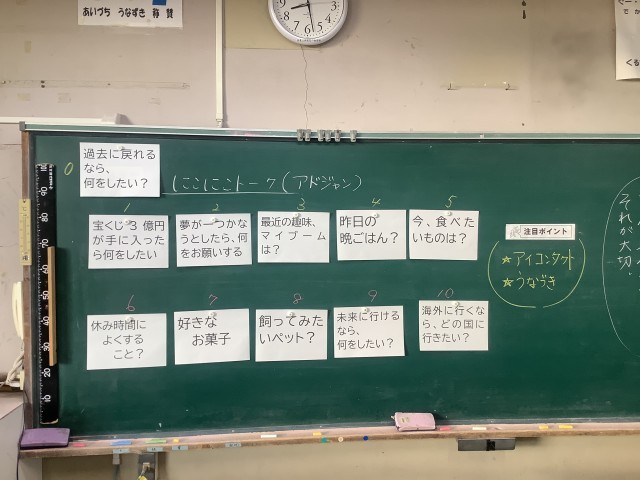 あいづち うなずき 称賛
0
過去に戻れる
なら、
何をしたい？
にこにこトーク(アドジャン)
1
宝くじ3億円
が手に入った
ら何をしたい
2
夢が一つかな
うとしたら、何
をお願いする
3
最近の趣味、
マイブーム
は？
4
昨日の
晩ごはん？
5
今、食べた
いものは？
注目ポイント
★アイコンタクト
★うなづき
それが
大切
6
休み時間に
よくする
こと？
7
好きな
お菓子
8
飼ってみた
いペット？
9
未来に行ける
なら、
何をしたい？
10
海外に行くな
ら、どの国に
行きたい？